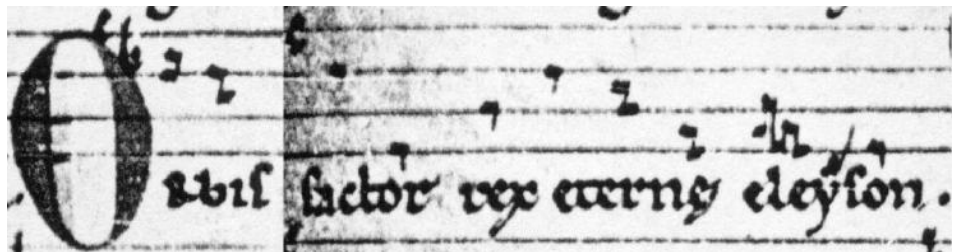 Orbis factor rex eternę eleyson.